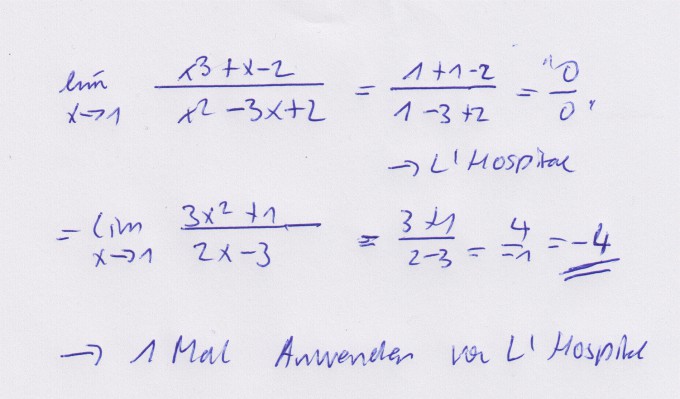 lim x→1 (x³ + x - 2)/(x² - 3x + 2) = (1 + 1 - 2)/(1 - 3 + 2) = "0/0"
→ L' Hospital
= lim x→1 (3x² + 1)/(2x - 3) = (3 + 1)/(2 - 3) = 4/-1 = -4
→ 1 Mal Anwenden von L' Hospital